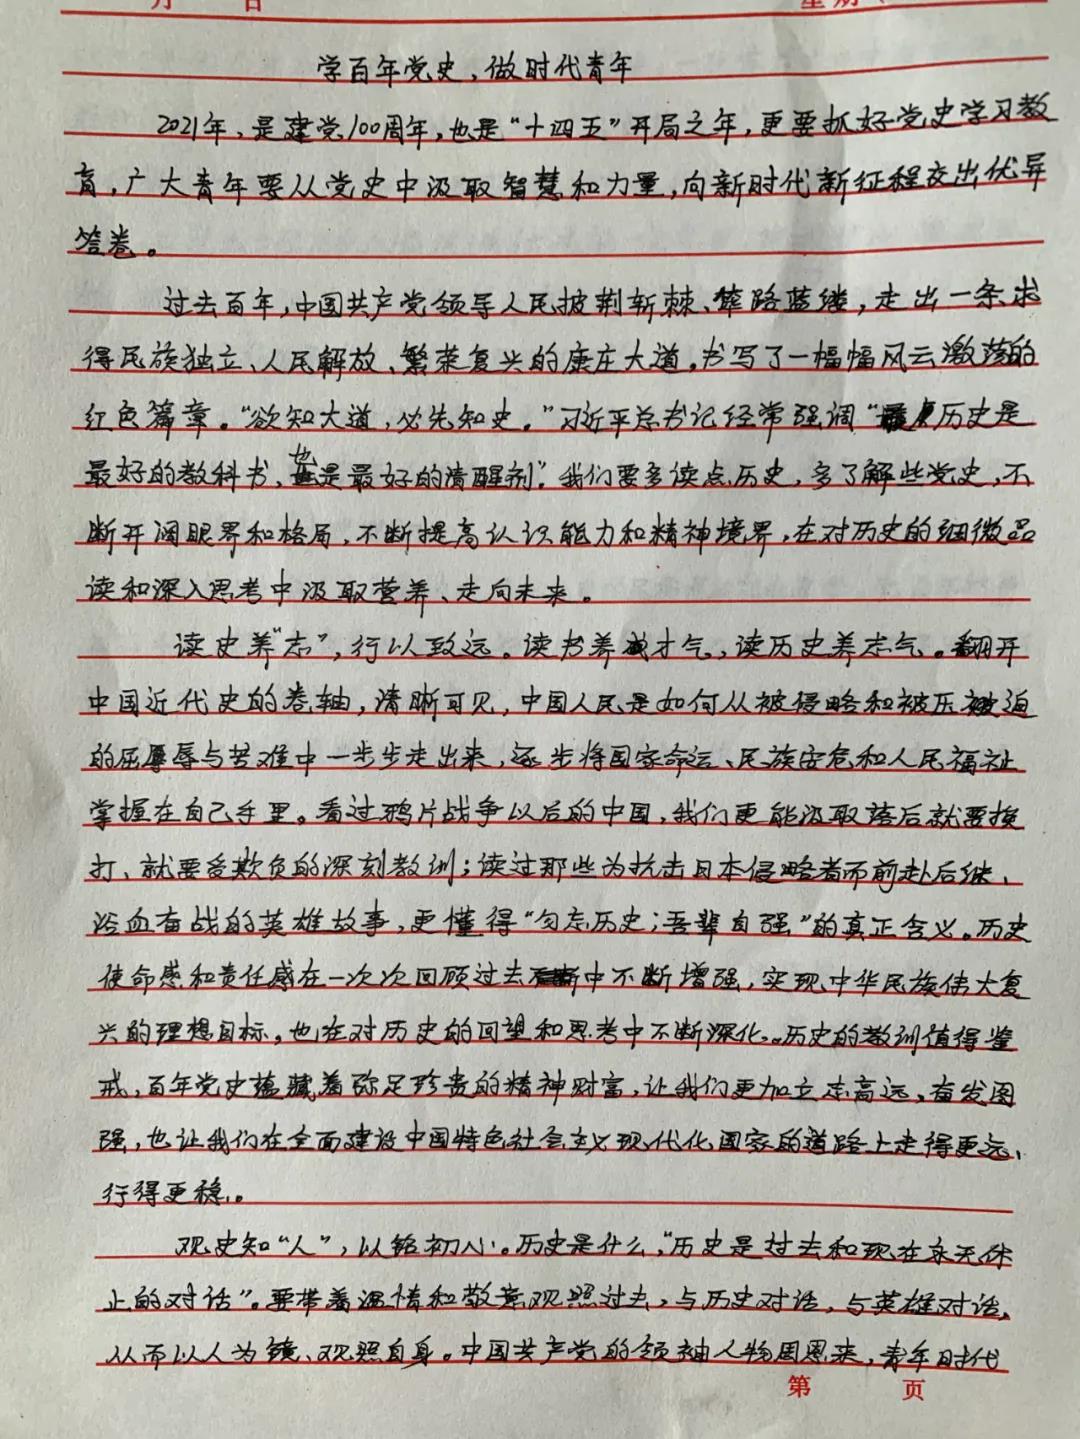 月 日 星期
学百年党史，做时代青年
2021年，是建党100周年，也是“十四五”开局之年，更要抓好党史学习教
育，广大青年要从党史中汲取智慧和力量，向新时代新征程交出优异
答卷。
过去百年，中国共产党领导人民披荆斩棘、筚路蓝缕，走出一条求
得民族独立、人民解放、繁荣复兴的康庄大道。书写了一幅幅风云激荡的
红色篇章。“欲知大道，必先知史。”习近平总书记经常强调“历史是
最好的教科书，也是最好的清醒剂”。我们要多读点历史，多了解些党史，不
断开阔眼界和格局，不断提高认识能力和精神境界，在对历史的细微品
读和深入思考中汲取营养、走向未来。
读史养“志”，行以致远。读书养才气，读历史养志气。翻开
中国近代史的卷轴，清晰可见，中国人民是如何从被侵略和被压迫
的屈辱与苦难中一步步走出来，逐步将国家命运、民族安危和人民福祉
掌握在自己手里。看过鸦片战争以后的中国，我们更能汲取落后就要挨
打、就要受欺负的深刻教训；读过那些为抗击日本侵略者而前赴后继、
浴血奋战的英雄故事，更懂得“勿忘历史；吾辈自强”的真正含义。历史
使命感和责任感在一次次回顾过去中不断增强，实现中华民族伟大复
兴的理想目标，也在对历史的回望和思考中不断深化。历史的教训值得鉴
戒，百年党史蕴藏着弥足珍贵的精神财富，让我们更加立志高远，奋发图
强，也让我们在全面建设中国特色社会主义现代化国家的道路上走得更远、
行得更稳。
观史知“人”，以铭初心。历史是什么，“历史是过去和现在永无休
止的对话”。要带着温情和敬意观照过去，与历史对话，与英雄对话，
从而以人为镜、观照自身。中国共产党的领袖人物周恩来，青年时代
第 页